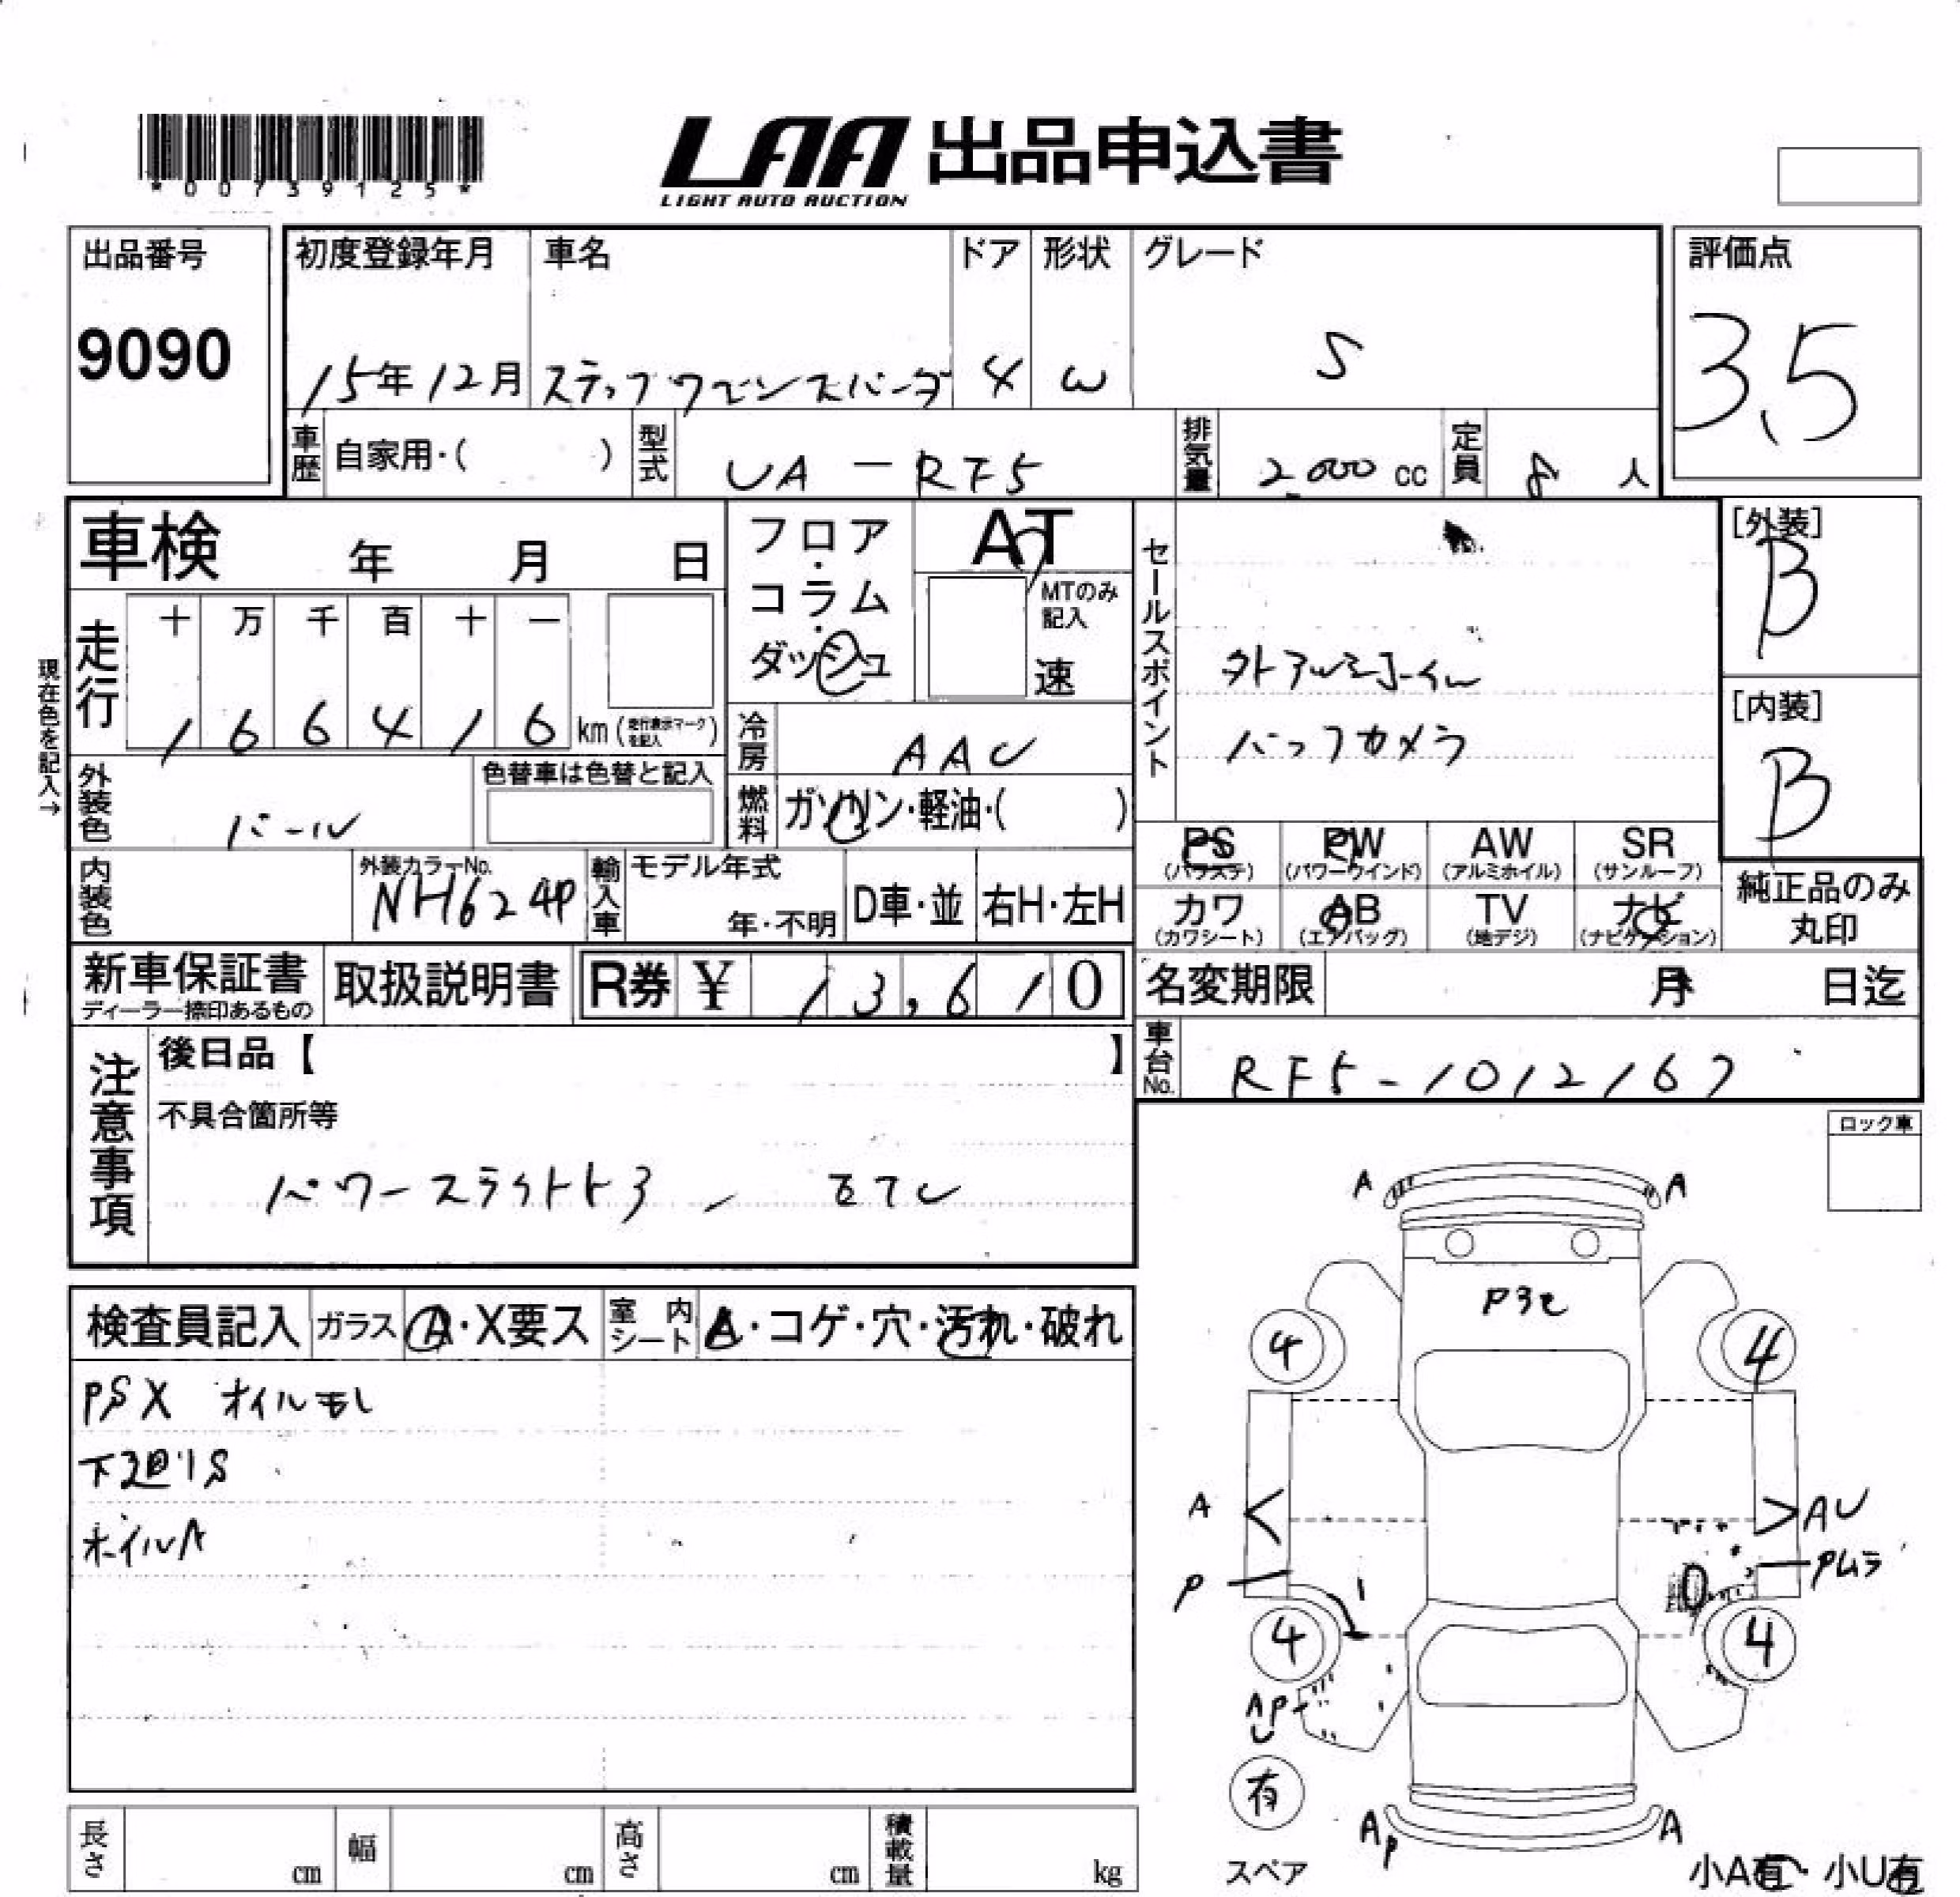 *00739125*
LAA 出品申込書
LIGHT AUTO AUCTION
出品番号
9090
初度登録年月
15年12月
車名
ステップワゴンスパーダ
ドア
4
形状
W
グレード
S
評価点
3.5
車歴 自家用・( )
型式 UA-RF5
排気量 2,000 cc
定員 8 人
車検 年 月 日
フロア・コラム・ダッシュ
AT
MTのみ記入
速
セールスポイント
外アルミホイル
バックカメラ
[外装]
B
[内装]
B
現在色を記入→
走行 十 万 千 百 十 一
1 6 6 4 1 6 km (走行表示マークを記入)
冷房 AAC
外装色 パール
色替車は色替と記入
燃料 ガソリン・軽油・( )
PS (パワステ)
PW (パワーウインド)
AW (アルミホイル)
SR (サンルーフ)
内装色
外装カラーNo.
NH624P
輸入車 モデル年式
年・不明
D車・並
右H・左H
カワ (カワシート)
AB (エアバッグ)
TV (地デジ)
ナビ (ナビゲーション)
純正品のみ丸印
新車保証書
ディーラー捺印あるもの
取扱説明書
R券 ¥ 13,610
名変期限 月 日迄
車台No. RF5-1012167
注意事項
後日品【 】
不具合箇所等
パワースライドドア
ETC
ロック車
検査員記入 ガラス A・X要ス 室内シート A・コゲ・穴・汚れ・破れ
PSX オイルモレ
下廻りS
ホイルA
A A
4 4
A AU
P Pムラ
4 4
AP
U
有
スペア
AP A
小A有・小U有
長さ cm 幅 cm 高さ cm 積載量 kg